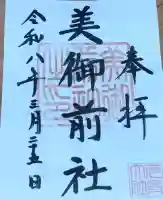 奉拝
美御前社
令和八年三月二十五日